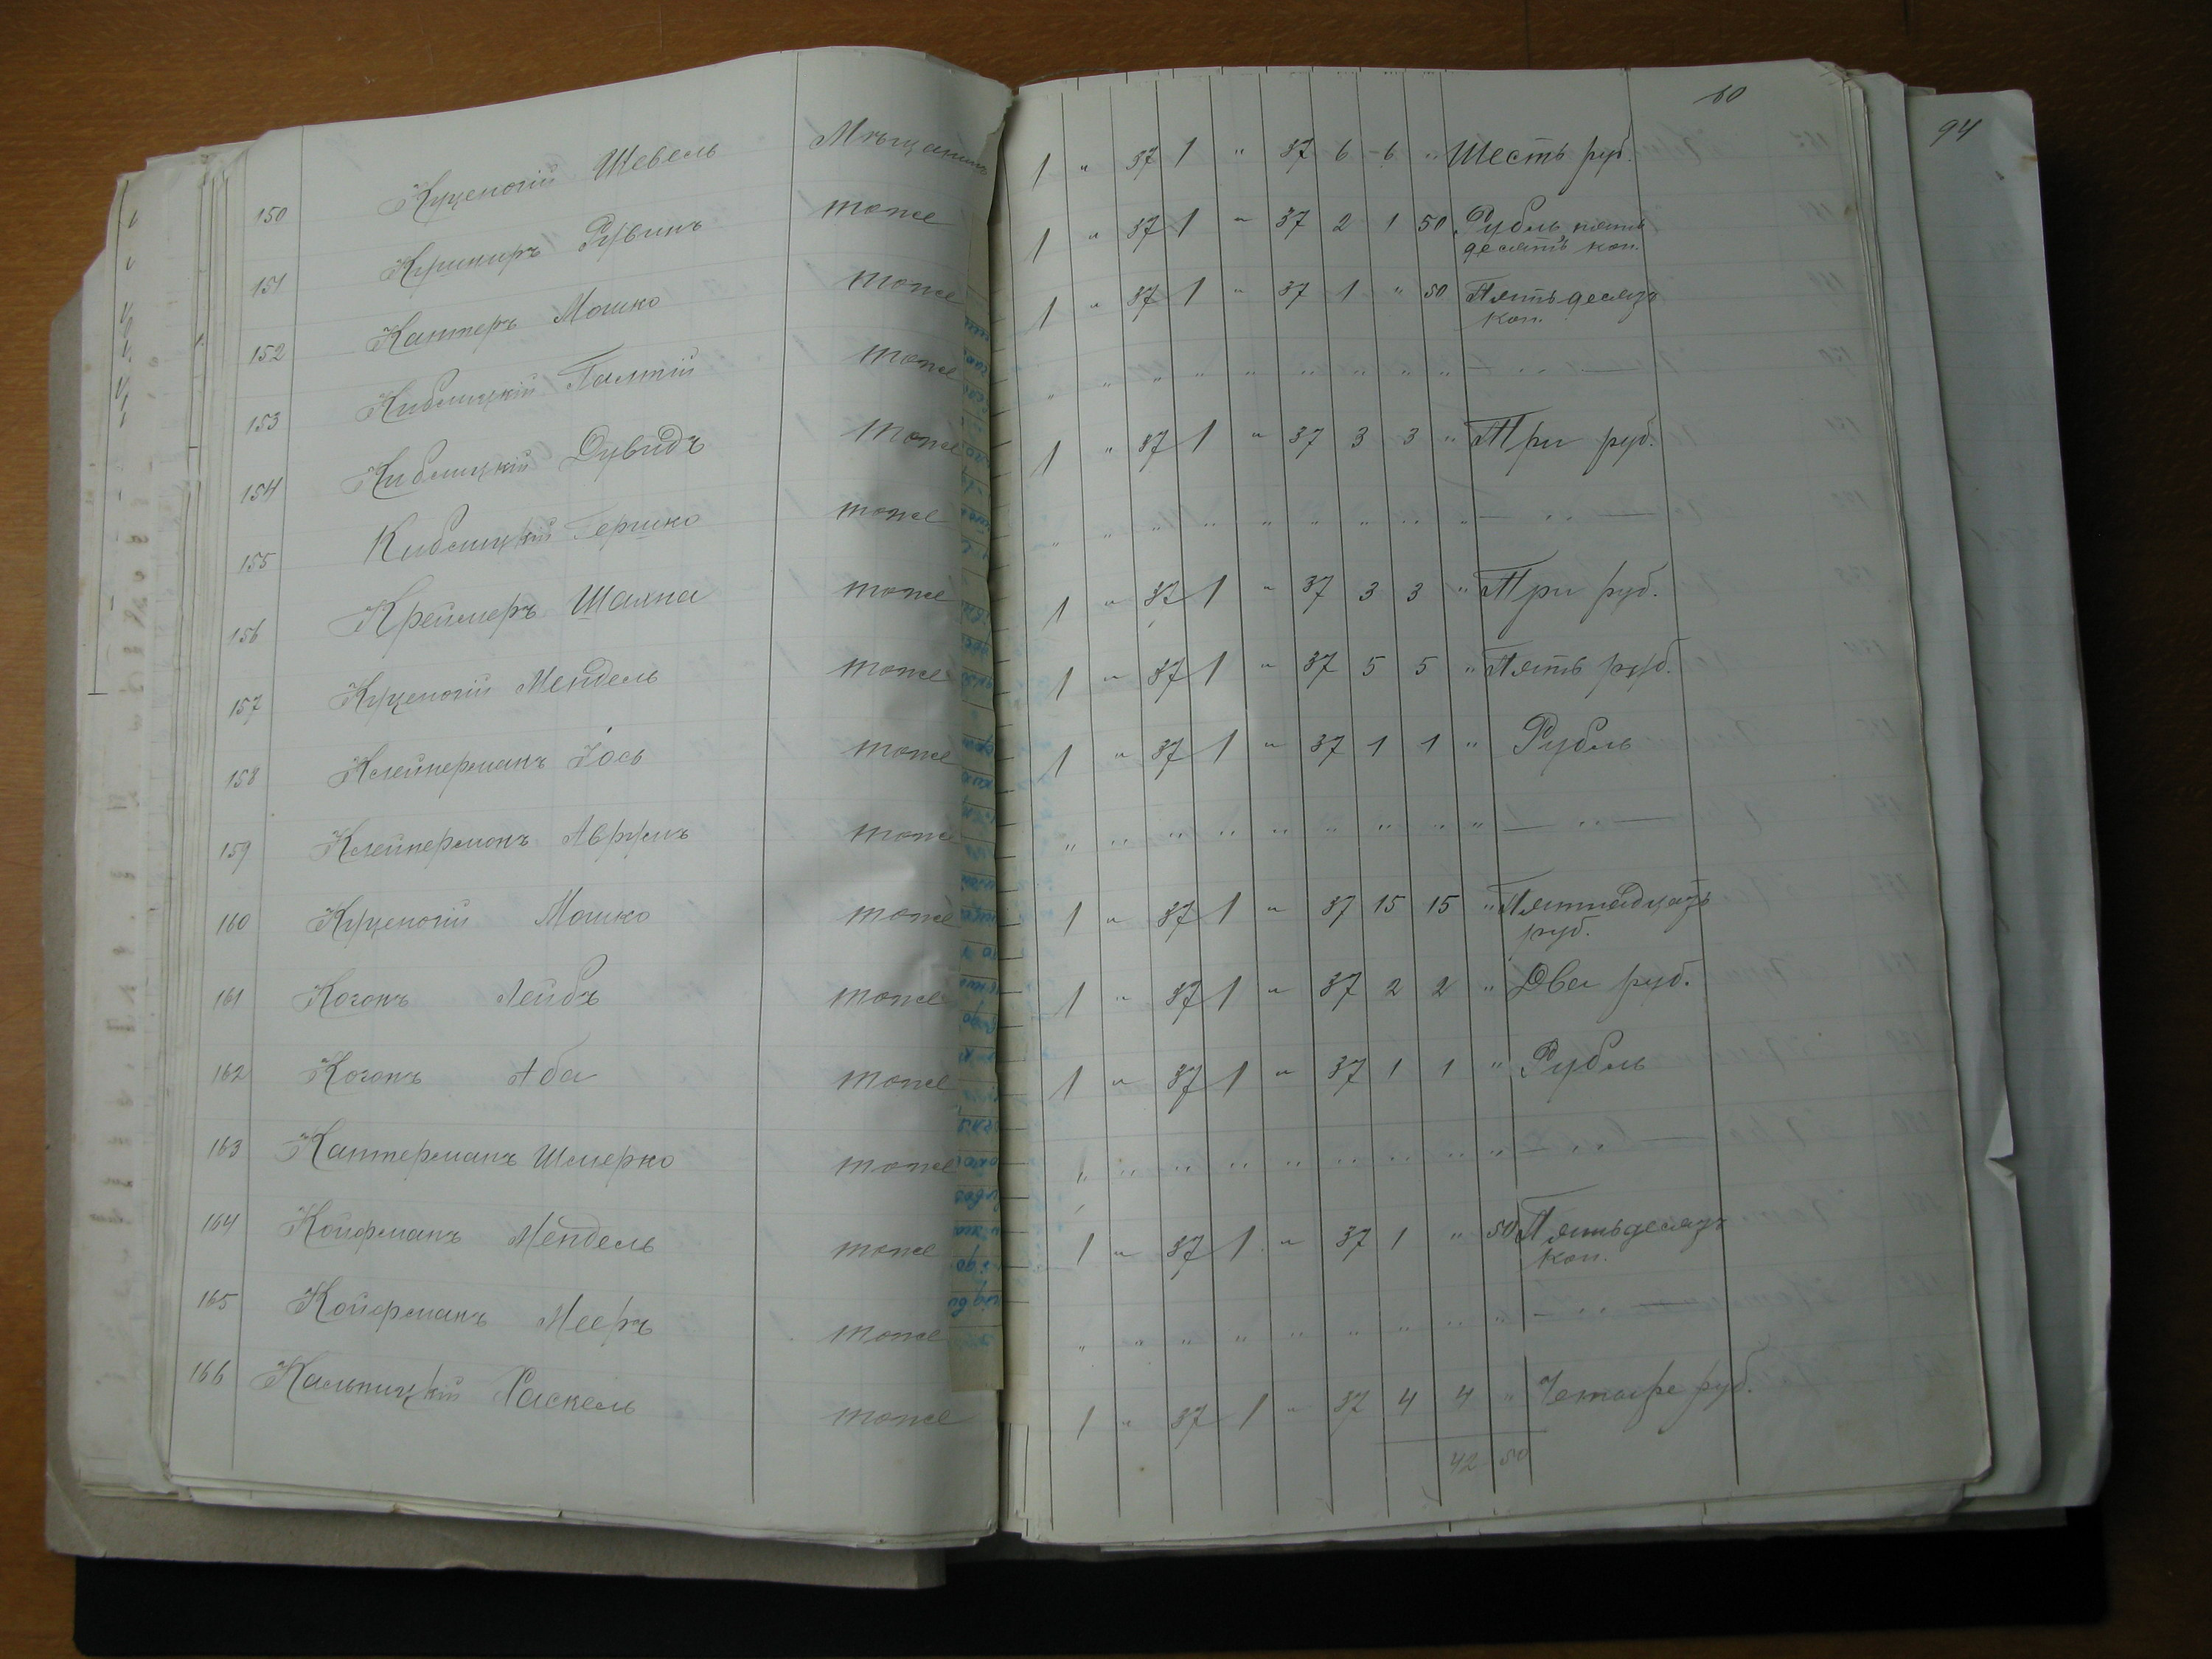 60
94
150 Куценогій Шевель Мѣщанинъ 1 " 37 1 " 37 6 6 " Шесть руб.
151 Кушниръ Рувинъ тоже 1 " 37 1 " 37 2 1 50 Рубль пять
десятъ коп.
152 Кантеръ Мошко тоже 1 " 37 1 " 37 1 " 50 Пятьдесятъ
коп.
153 Киблицкій тоже " " " " " " " " " — " —
154 Киблицкій Дувидъ тоже 1 " 37 1 " 37 3 3 " Три руб.
155 Киблицкій Гершко тоже " " " " " " " " " — " —
156 Креймеръ Шапна тоже 1 " 37 1 " 37 3 3 " Три руб.
157 Куценогій Мендель тоже 1 " 37 1 " 37 5 5 " Пять руб.
158 Клейнерманъ Іось тоже 1 " 37 1 " 37 1 1 " Рубль
159 Клейнерманъ Аврумъ тоже " " " " " " " " " — " —
160 Куценогій Мошко тоже 1 " 37 1 " 37 15 15 " Пятнадцать
руб.
161 Коганъ Лейбъ тоже 1 " 37 1 " 37 2 2 " Два руб.
162 Коганъ Аба тоже 1 " 37 1 " 37 1 1 " Рубль
163 Кантерманъ Шмерко тоже " " " " " " " " " — " —
164 Койфманъ Мендель тоже 1 " 37 1 " 37 1 " 50 Пятьдесятъ
коп.
165 Койфманъ Мееръ тоже " " " " " " " " " — " —
166 Кальницкій Хаскель тоже 1 " 37 1 " 37 4 4 " Четыре руб.
42 50